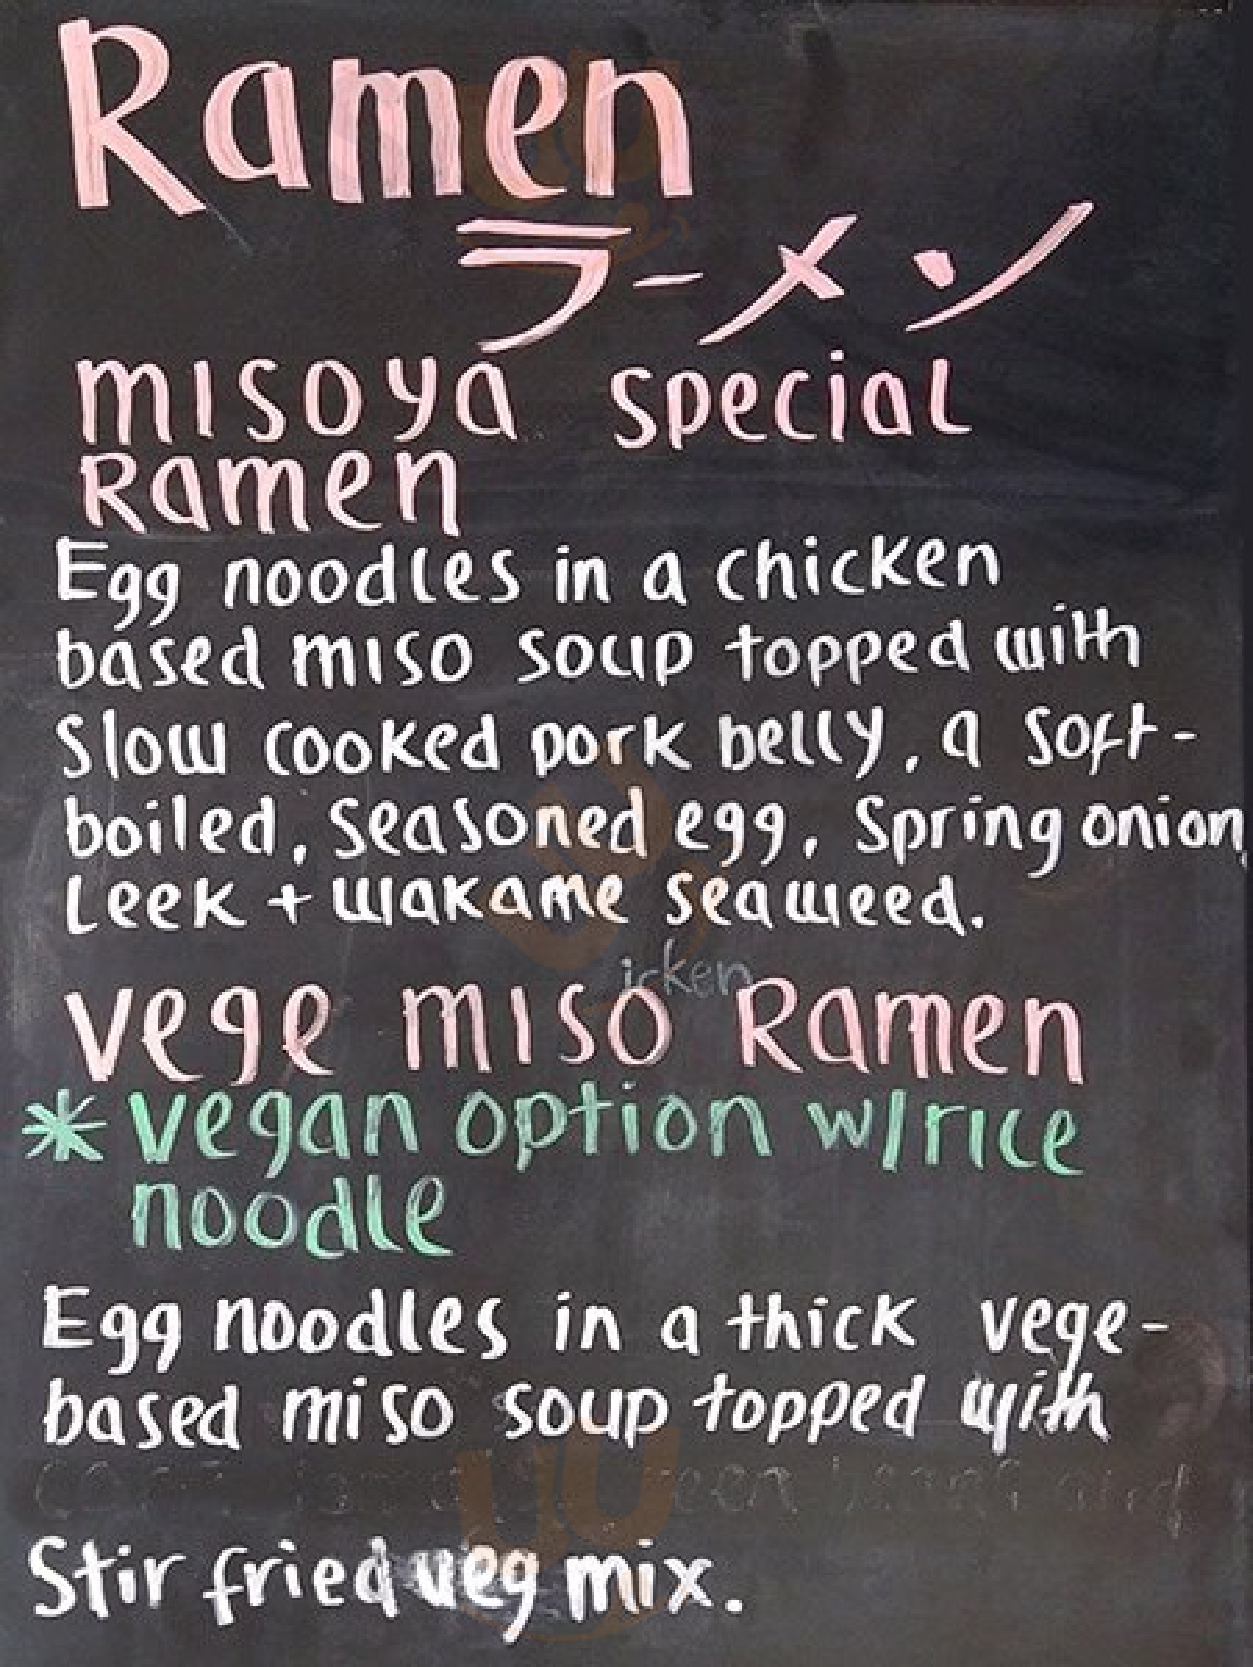 Ramen
ラーメン
MISOYA SPECIAL
RAMEN
Egg noodles in a chicken
based miso soup topped with
Slow cooked pork belly, a soft-
boiled, seasoned egg, Spring onion,
Leek + wakame seaweed.
icken
Vege miso Ramen
* vegan option w/rice
noodle
Egg noodles in a thick vege-
based miso soup topped with
Stir fried veg mix.